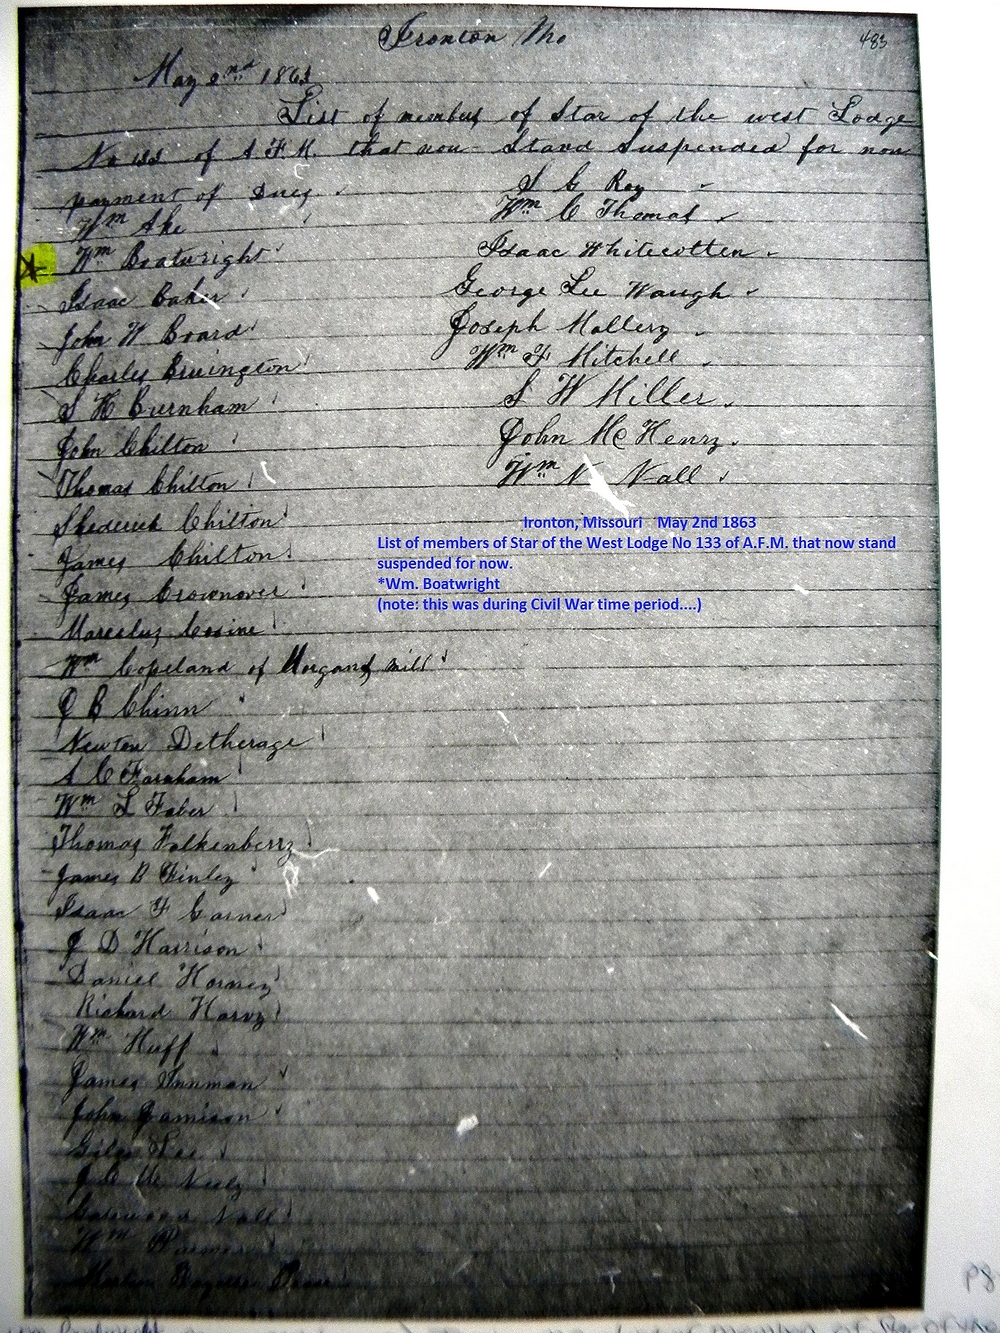 Ironton Mo
483
May 2nd 1863
List of members of Star of the west Lodge
No 133 of A F M. that now Stand Suspended for non
payment of Dues
Wm Ake
* Wm Boatwright
Isaac Baker
John W Board
Charles Bivington
S H Burnham
John Chilton
Thomas Chilton
Shederick Chilton
James Chilton
James Crownover
Marcelus Cosine
Wm Copeland of Morgans mill
J B Chinn
Newton Detherage
A C Farnham
Wm L Faber
Thomas Falkenberry
James B Finley
Isaac F Garner
J D Harrison
Daniel Horney
Richard Harvy
Wm Huff
James Inman
John Jamison
Giles Lee
J C Mc Neely
Nall
Wm
S C Roy
Wm C Thomas
Isaac Whitecotten
George Lee Waugh
Joseph Mallery
Wm F Mitchell
S W Miller
John Mc Henry
Wm N Nall
Ironton, Missouri May 2nd 1863
List of members of Star of the West Lodge No 133 of A.F.M. that now stand
suspended for now.
*Wm. Boatwright
(note: this was during Civil War time period....)
P8